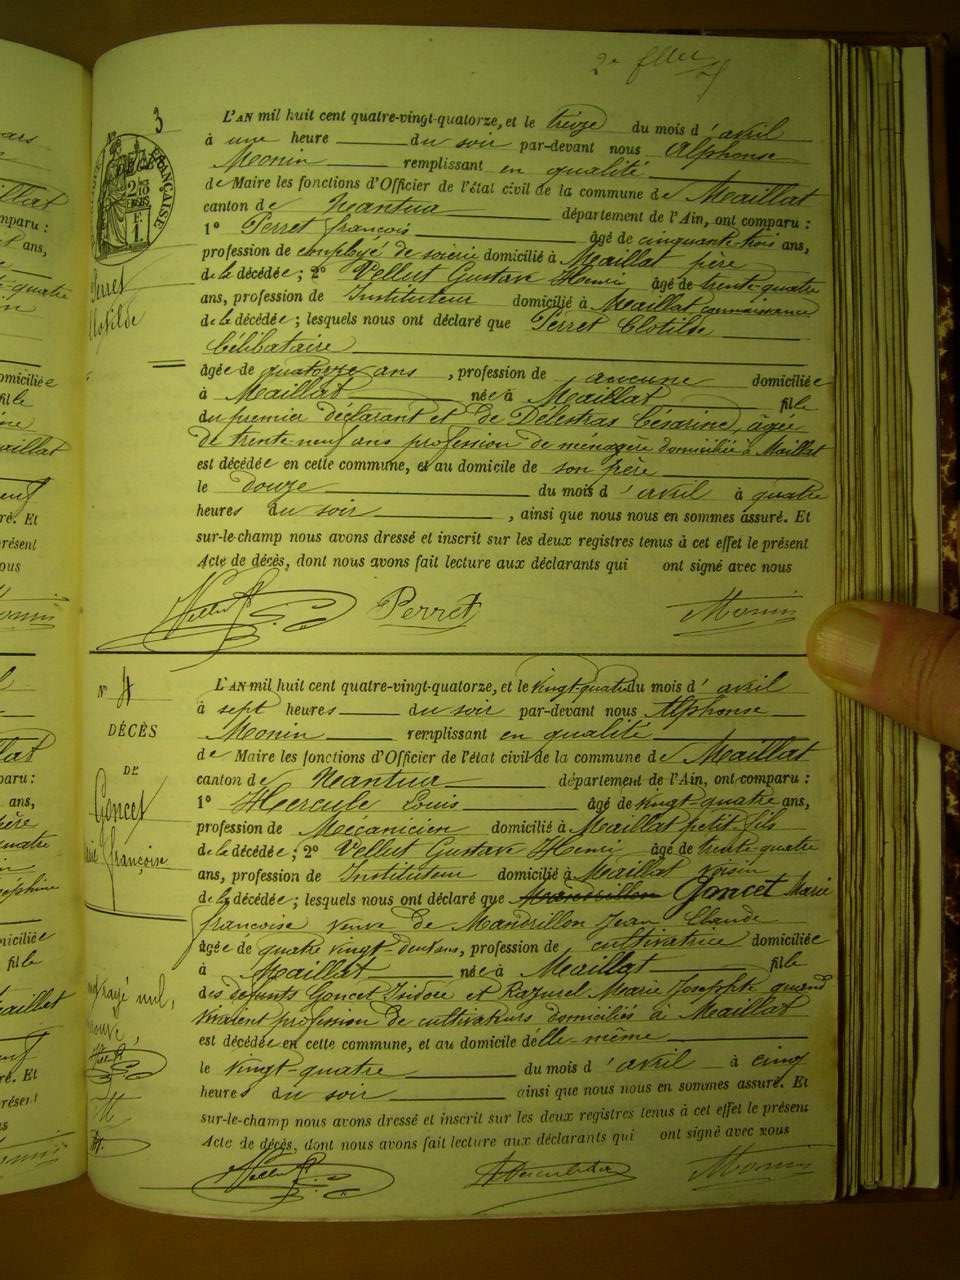 2e fllet
3
L'AN mil huit cent quatre-vingt-quatorze, et le treize du mois d'avril
à une heure du soir par-devant nous Alphonse
Monin remplissant en qualité
de Maire les fonctions d'Officier de l'état civil de la commune de Maillat
canton de Nantua département de l'Ain, ont comparu :
1° Perret françois âgé de cinquante-trois ans,
profession de employé de soierie domicilié à Maillat père
de la décédée ; 2° Vellut Gustave Henri, âgé de trente-quatre
ans, profession de Instituteur domicilié à Maillat connaissance
de la décédée ; lesquels nous ont déclaré que Perret Clotilde
Célibataire
Perret
Clotilde
âgée de quatorze ans, profession de aucune domiciliée
à Maillat née à Maillat fille
du premier déclarant et de Délestras Césarine, âgée
de trente-neuf ans profession de ménagère domiciliée à Maillat
est décédée en cette commune, et au domicile de son père
le douze du mois d'avril à quatre
heures du soir, ainsi que nous nous en sommes assuré. Et
sur-le-champ nous avons dressé et inscrit sur les deux registres tenus à cet effet le présent
Acte de décès, dont nous avons fait lecture aux déclarants qui ont signé avec nous
Vellut Perret Monin
N° 4
DÉCÈS
DE
Goncet
Marie françoise
L'AN mil huit cent quatre-vingt-quatorze, et le vingt-quatre du mois d'avril
à sept heures du soir par-devant nous Alphonse
Monin remplissant en qualité
de Maire les fonctions d'Officier de l'état civil de la commune de Maillat
canton de Nantua département de l'Ain, ont comparu :
1° Hercule Louis âgé de vingt-quatre ans,
profession de Mécanicien domicilié à Maillat petit-fils
de la décédée ; 2° Vellut Gustave Henri âgé de trente-quatre
ans, profession de Instituteur domicilié à Maillat voisin
de la décédée ; lesquels nous ont déclaré que Mandrillon Goncet Marie
françoise veuve de Mandrillon Jean Claude
âgée de quatre vingt-deux ans, profession de cultivatrice domiciliée
à Maillat née à Maillat fille
des défunts Goncet Isidore et Marie Josephte quand
vivaient profession de cultivateurs domiciliés à Maillat
est décédée en cette commune, et au domicile d'elle-même
le vingt-quatre du mois d'avril à cinq
heures du soir ainsi que nous nous en sommes assuré. Et
sur-le-champ nous avons dressé et inscrit sur les deux registres tenus à cet effet le présent
Acte de décès, dont nous avons fait lecture aux déclarants qui ont signé avec nous
rayé nul,
Vellut Monin